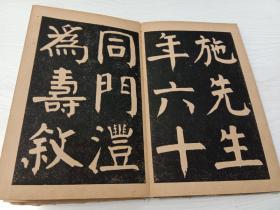 施先生
年六十
同門灃
為壽敘